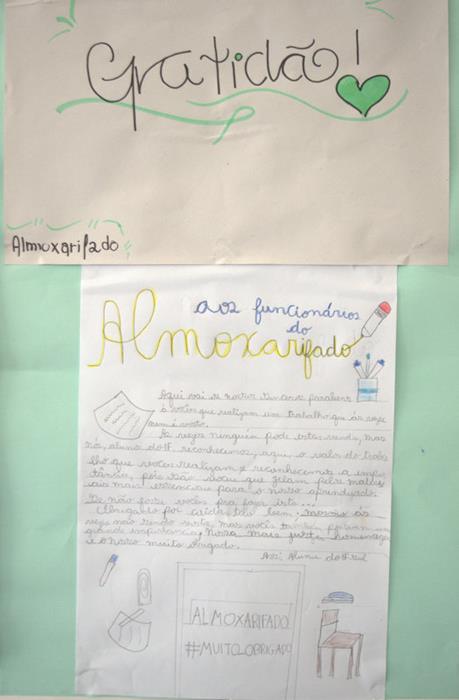 Gratidão!
Almoxarifado
aos funcionários
do
Almoxarifado
Aqui vai os nossos sinceros parabéns
à vocês que realizam um trabalho que às vezes
nem é visto.
Às vezes ninguém pode estar vendo, mas
nós, alunos do reconhecemos, aqui, o valor do traba
lho que vocês realizam e reconhecemos a impor
tância, pois são vocês que zelam pelos mate
riais mais essenciais para o nosso aprendizado.
Se não fosse vocês pra fazer isto...
Obrigado por cuidar tão bem, mesmo às
vezes não sendo vistos, mas vocês também
grande importância, nossa mais justa homenagem
e o nosso muito obrigado.
Ass: Alunos do
ALMOXARIFADO
#MUITOOBRIGADO